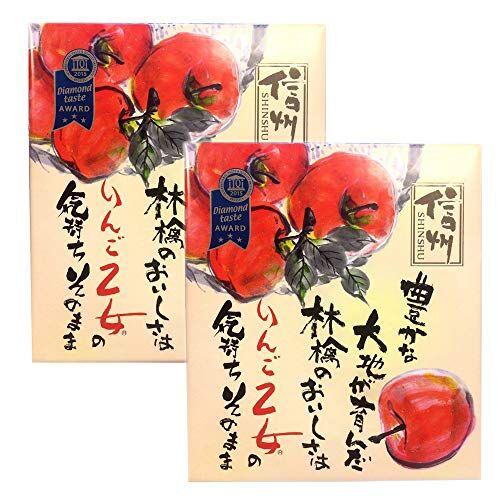 信州
SHINSHU
2015
Diamond
taste
AWARD
林檎のおいしさは
りんご乙女®の
気持ちそのまま
信州
SHINSHU
2015
Diamond
taste
AWARD
豊かな
大地が育んだ
林檎のおいしさは
りんご乙女®の
気持ちそのまま